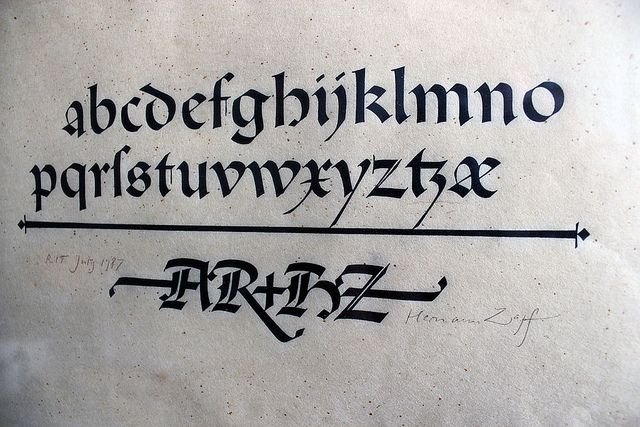 abcdefghijklmno
pqrſstuvwxyztzæ
R.I.T. July 1987
AR+HZ
Hermann Zapf